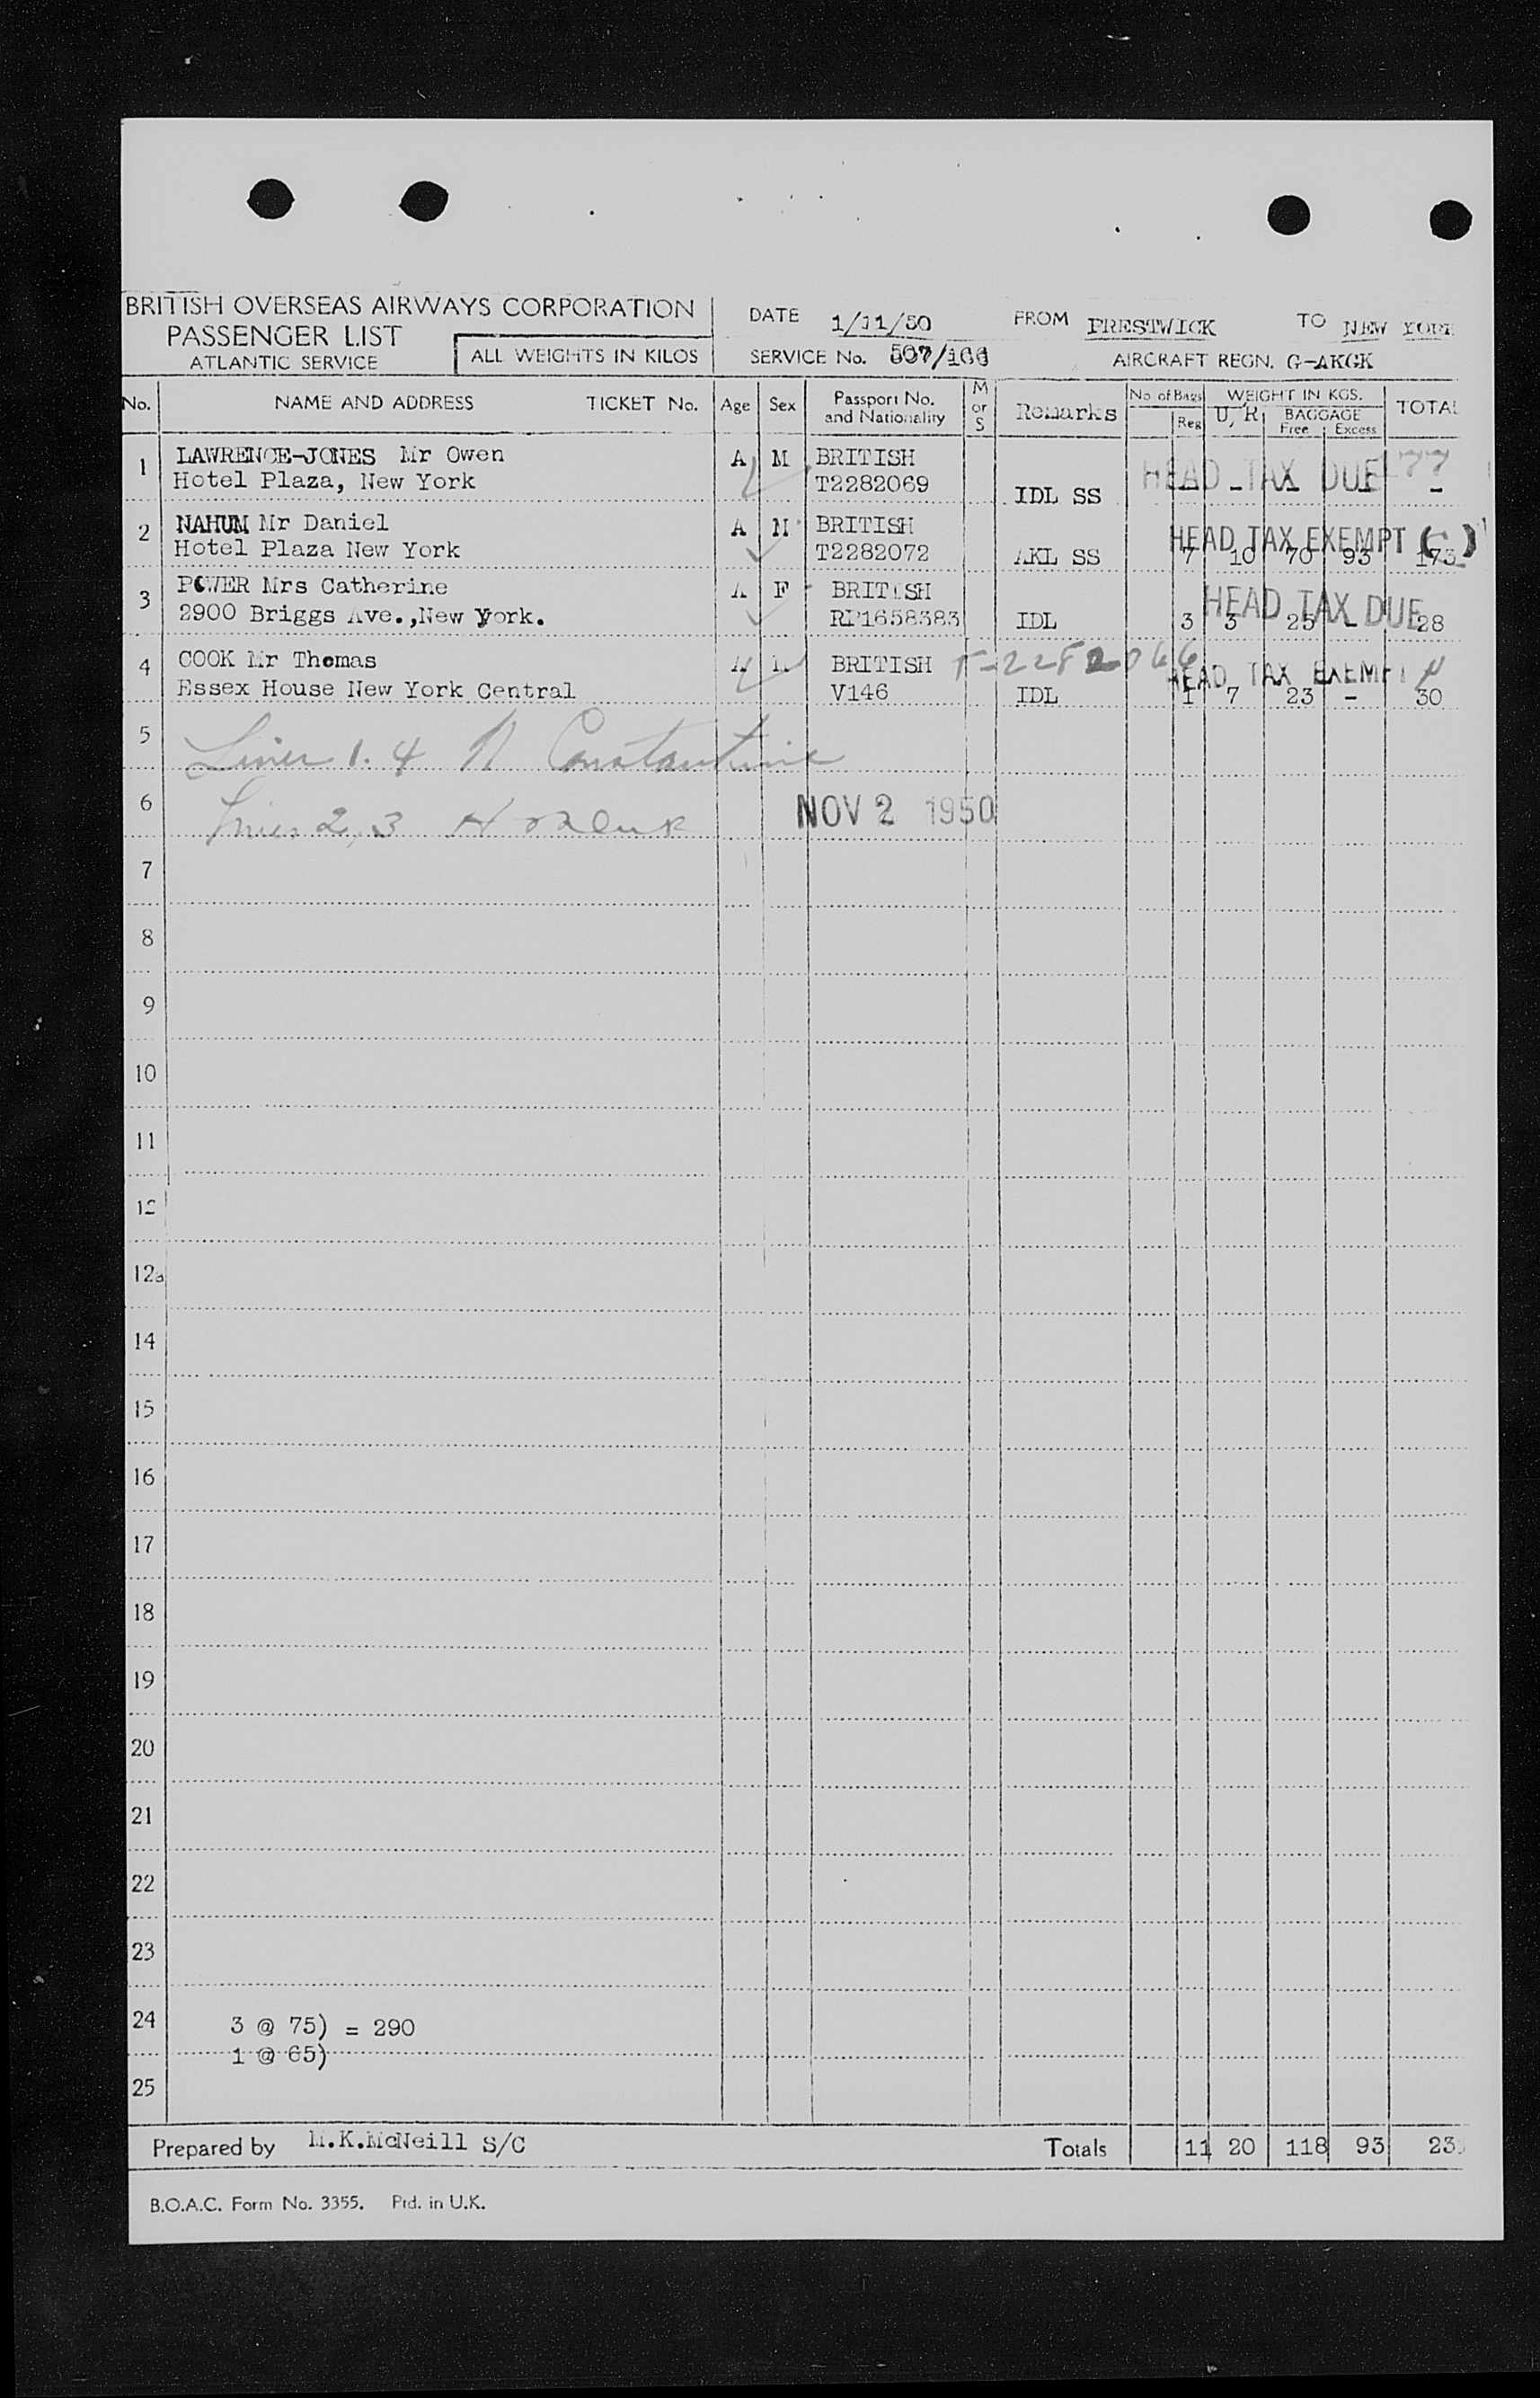 BRITISH OVERSEAS AIRWAYS CORPORATION
PASSENGER LIST
ATLANTIC SERVICE
ALL WEIGHTS IN KILOS
DATE 1/11/50 FROM PRESTWICK TO NEW YORK
SERVICE No. 507/166 AIRCRAFT REGN. G-AKGK
No. NAME AND ADDRESS TICKET No. Age Sex Passport No. and Nationality M or S Remarks No of Bags Reg WEIGHT IN KGS. U/R BAGGAGE Free Excess TOTAL
1 LAWRENCE-JONES Mr Owen A M BRITISH HEAD TAX DUE 77
Hotel Plaza, New York T2282069 IDL SS - - - - -
2 NAHUM Mr Daniel A M BRITISH HEAD TAX EXEMPT
Hotel Plaza New York T2282072 AKL SS 7 10 70 93 173
3 POWER Mrs Catherine A F BRITISH HEAD TAX DUE
2900 Briggs Ave.,New York. RP1658383 IDL 3 3 25 - 28
4 COOK Mr Thomas A M BRITISH T-2282066 HEAD TAX EXEMPT
Essex House New York Central V146 IDL 1 7 23 - 30
5 Lines 1. 4 N Constantine
6 Lines 2, 3 NOV 2 1950
7
8
9
10
11
12
12a
14
15
16
17
18
19
20
21
22
23
24 3 @ 75) = 290
1 @ 65)
25
Prepared by M.K.McNeill S/C Totals 11 20 118 93
B.O.A.C. Form No. 3355. Ptd. in U.K.